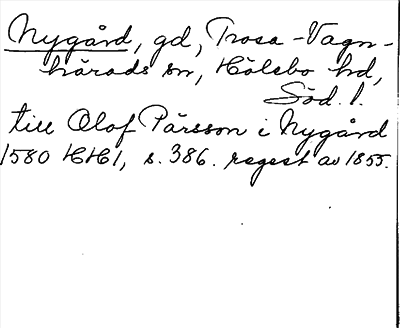 Nygård, gd, Trosa-Vagn-
härads sn, Hölebo hd,
Söd. l.
till Olof Pärsson i Nygård
1580 HH1, s. 386. regest av 1855.